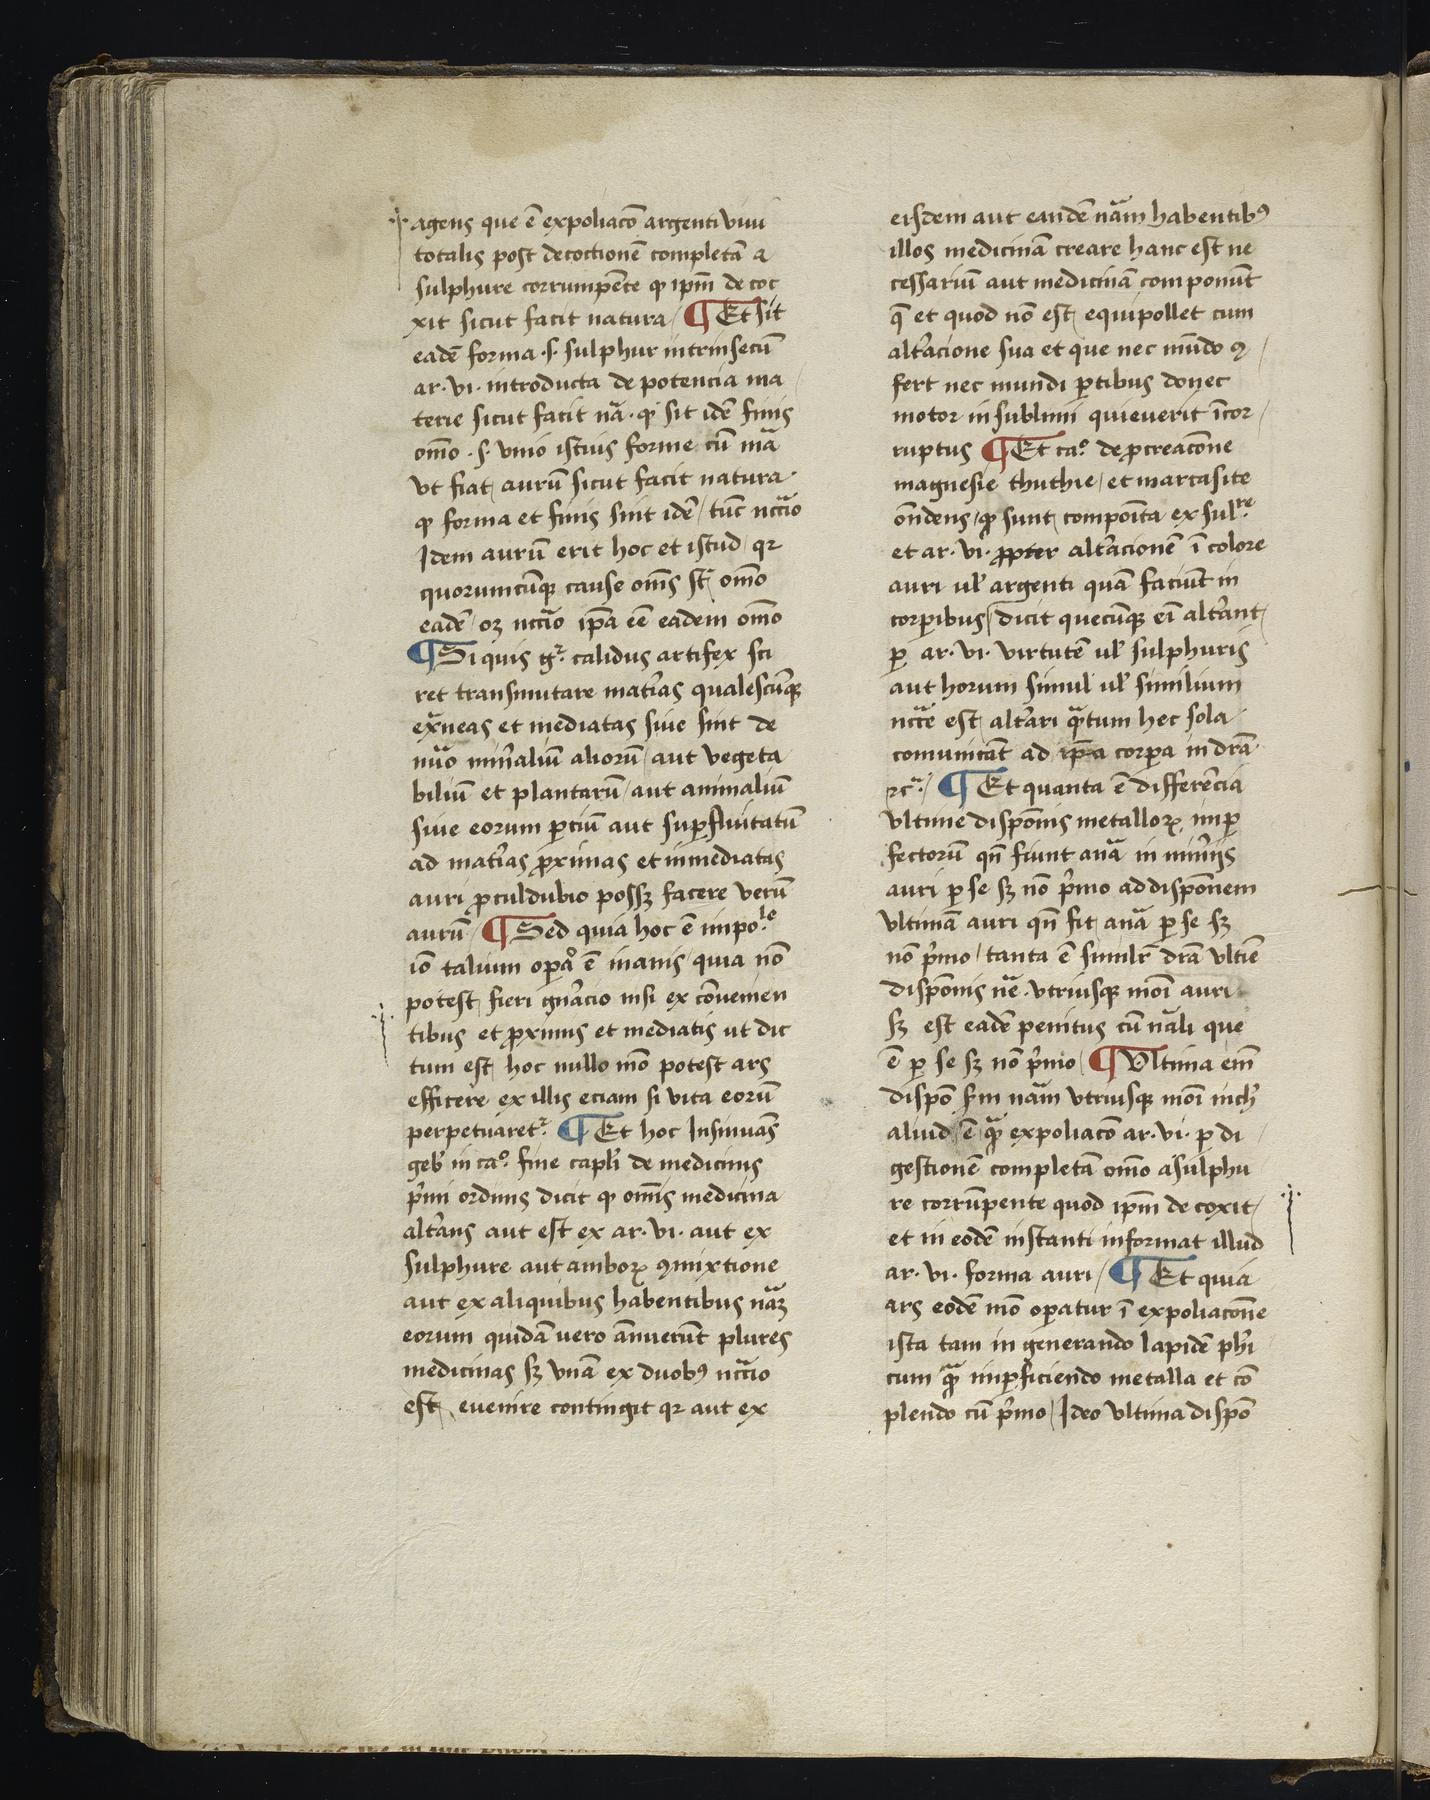 agens que ē expoliacō argenti viui
totalis post decoctionē completā a
sulphure corrumpēte ꝙ ipm̄ de coc
xit sicut facit natura / ¶ Et sit
eadē forma ·s· sulphur intrinsecū
ar· vi· introducta de potencia ma
terie sicut facit nā· ꝙ sit idē finis
om̄o ·s· vnio istius forme cū mā
vt fiat aurū sicut facit natura·
ꝙ forma et finis sint idē / tūc nccāio
Idem aurū erit hoc et istud / qꝛ
quorumcūqꝫ cause om̄s st̄ om̄o
eadē / oꝫ nccāio ip̄a eē eadem om̄o
¶ Si quis gͬ calidus artifex sci
ret transmutare mat̓ias qualescūqꝫ
exᷓneas et mediatas siue sint de
nūo min̓alium aliorū / aut vegeta
biliū et plantarū / aut animaliū
siue eorum ꝑciū aut suꝑfluitatū
ad mat̓ias ꝓximas et inmediatas
auri ꝓculdubio possꝫ facere verū
aurū / ¶ Sed quia hoc ē impo.ˡᵉ
iō talium oꝑaᷣ ē inanis / quia nō
potest fieri gn̓acio nisi ex cōuenien
tibus et ꝓximis et mediatis ut dic
tum est / hoc nullo mō potest ars
efficere ex illis eciam si vita eorū
perpetuaretᷣ. ¶ Et hoc Insinuās
geb̓ in ca.ᵒ fine capl̓i de medicinis
p̓mi ordinis dicit ꝙ om̄is medicina
alt̓ans aut est ex ar· vi· aut ex
sulphure aut amboꝝ ꝯmixtione
aut ex aliquibus habentibus nāꝫ
eorum quidā vero ānuerūt plures
medicinas sꝫ vnā ex duobꝰ nccāio
est / euenire contingit qꝛ aut ex
eisdem aut eandē nām habentibꝰ
illos medicinā creare hanc est ne
cessariū aut medicinā componūt
q̄ et quod nō est / equipollet cum
alt̓acione sua et que nec mūdo ꝯ
fert nec mundi ꝑtibus donec
motor in sublimi quieuerit īcor
ruptus ¶ Et ca.ᵒ de ꝓcreacōne
magnesie thuthie / et marcasite
on̄dens / ꝙ sunt compoīta ex sul.ʳᵉ
et ar· vi· ꝓpter alt̓acionē ī colore
auri ul̓ argenti quā faciūt in
corꝑibus / dicit quecūqꝫ eī alt̓ant
ꝑ ar· vi· virtutē ul̓ sulphuris
aut horum simul ul̓ similium
nccē est / alt̓ari qᷓtum hec sola
comunicāt ad ip̄a corꝑa in dr̄a
⁊cᷓ. / ¶ Et quanta ē differēcia
vltime dispōnis metalloꝝ imꝑ
fectorū qn̄ fiunt anā in min̓ijs
auri ꝑ se sꝫ nō p̓mo ad dispōnem
vltimā auri qn̄ fit anā ꝑ se sꝫ
nō p̓mo / tanta ē similr̄ dr̄a vltīe
dispōnis nē· vtriusqꝫ moī auri
sꝫ est eadē penitus cū nāli que
ē ꝑ se sꝫ nō p̓mo / ¶ Vltima em̄
dispō sm̄ nām vtriusqꝫ moī nich̓
aliud ē qᷓ expoliacō ar· vi· ꝑ di
gestionē completā om̄o a sulphu
re corrūpente quod ipm̄ de coxit /
et in eodē instanti informat illud
ar· vi· forma auri / ¶ Et quia
ars eodē mō oꝑatur ī expoliacōne
ista tam in generando lapidē ph̓i
cum qᷓ imꝑficiendo metalla et cō
plendo cū p̓mo / Ideo vltima dispō